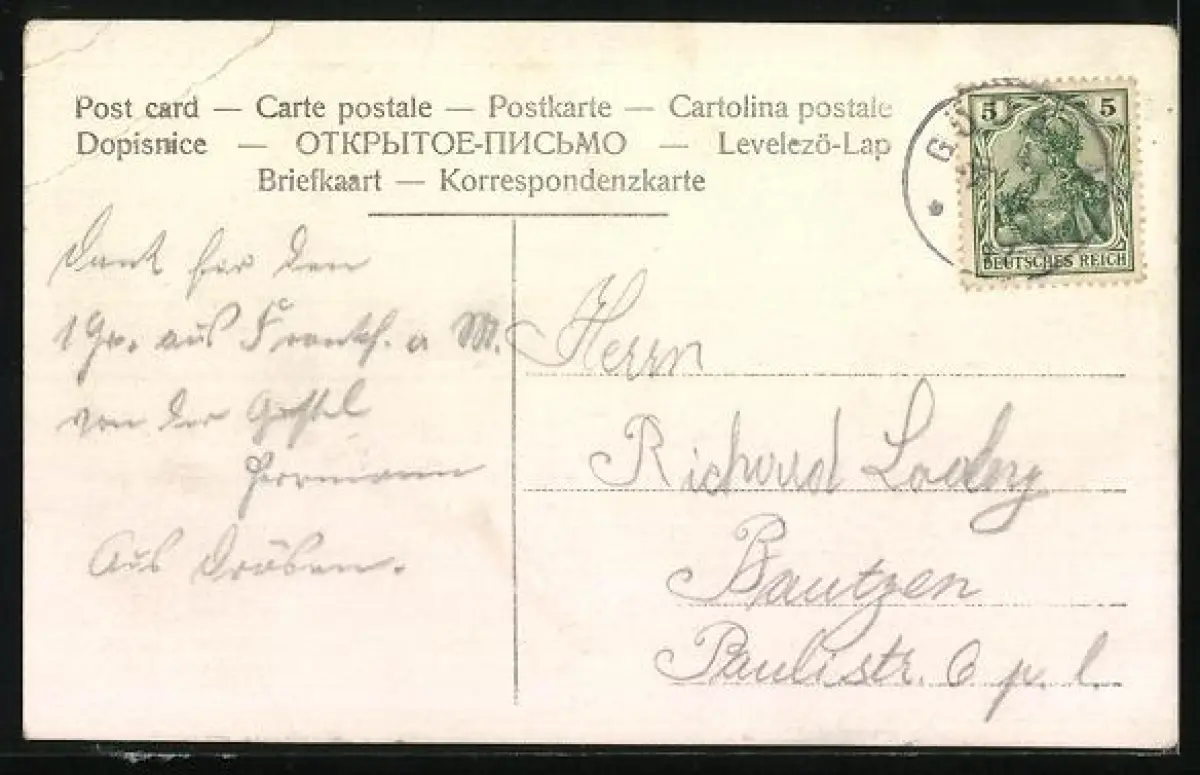 Post card — Carte postale — Postkarte — Cartolina postale
Dopisnice — ОТКРЫТОЕ-ПИСЬМО — Levelezö-Lap
Briefkaart — Korrespondenzkarte
5 5
DEUTSCHES REICH
Dank für den
1 Gr. aus Frankf. a M.
von der
Hermann
Aus
Herrn
Richard
Bautzen
Paulistr. 6 p. l.